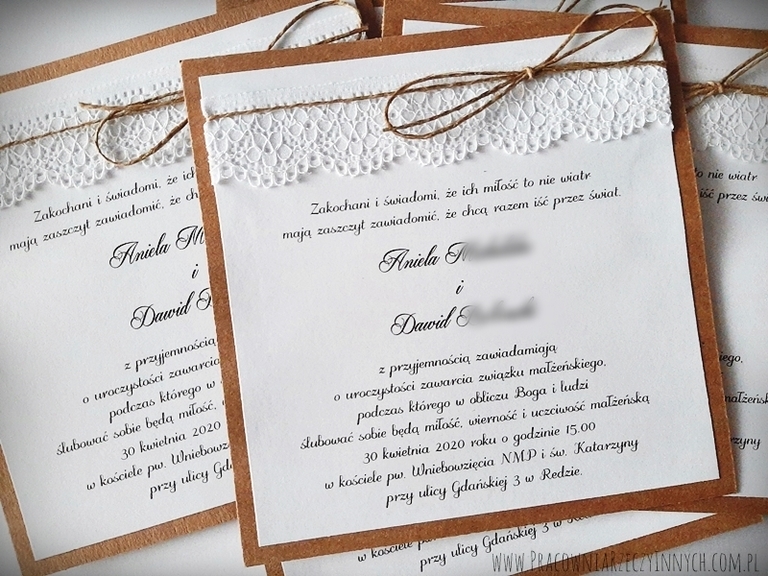 Zakochani i świadomi, że ich miłość to nie wiatr
mają zaszczyt zawiadomić, że chcą razem iść przez świat.
Aniela
i
Dawid
z przyjemnością zawiadamiają
o uroczystości zawarcia związku małżeńskiego,
podczas którego w obliczu Boga i ludzi
ślubować sobie będą miłość, wierność i uczciwość małżeńską
30 kwietnia 2020 roku o godzinie 15.00
w kościele pw. Wniebowzięcia NMP i św. Katarzyny
przy ulicy Gdańskiej 3 w Redzie.
Zakochani i świadomi, że ich
mają zaszczyt zawiadomić, że ch
Aniela M
i
Dawid
z przyjemnością
o uroczystości zawarcia
podczas którego w
ślubować sobie będą miłość,
30 kwietnia 2020
w kościele pw. Wniebowzię
przy ulicy Gd
to nie wiatr
iść przez św
przy ulicy Gdańskiej 3 w Redzie.
www.PracowniaRzeczyInnych.com.pl